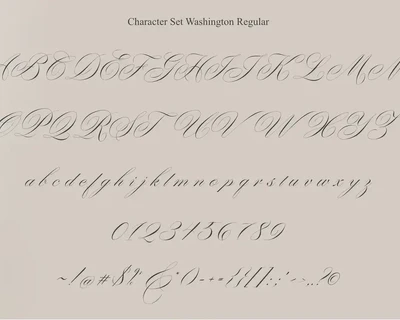 Character Set Washington Regular
A B C D E F G H I J K L M N
O P Q R S T U V W X Y Z
a b c d e f g h i j k l m n o p q r s t u v w x y z
0 1 2 3 4 5 6 7 8 9
~ ! @ # $ % &